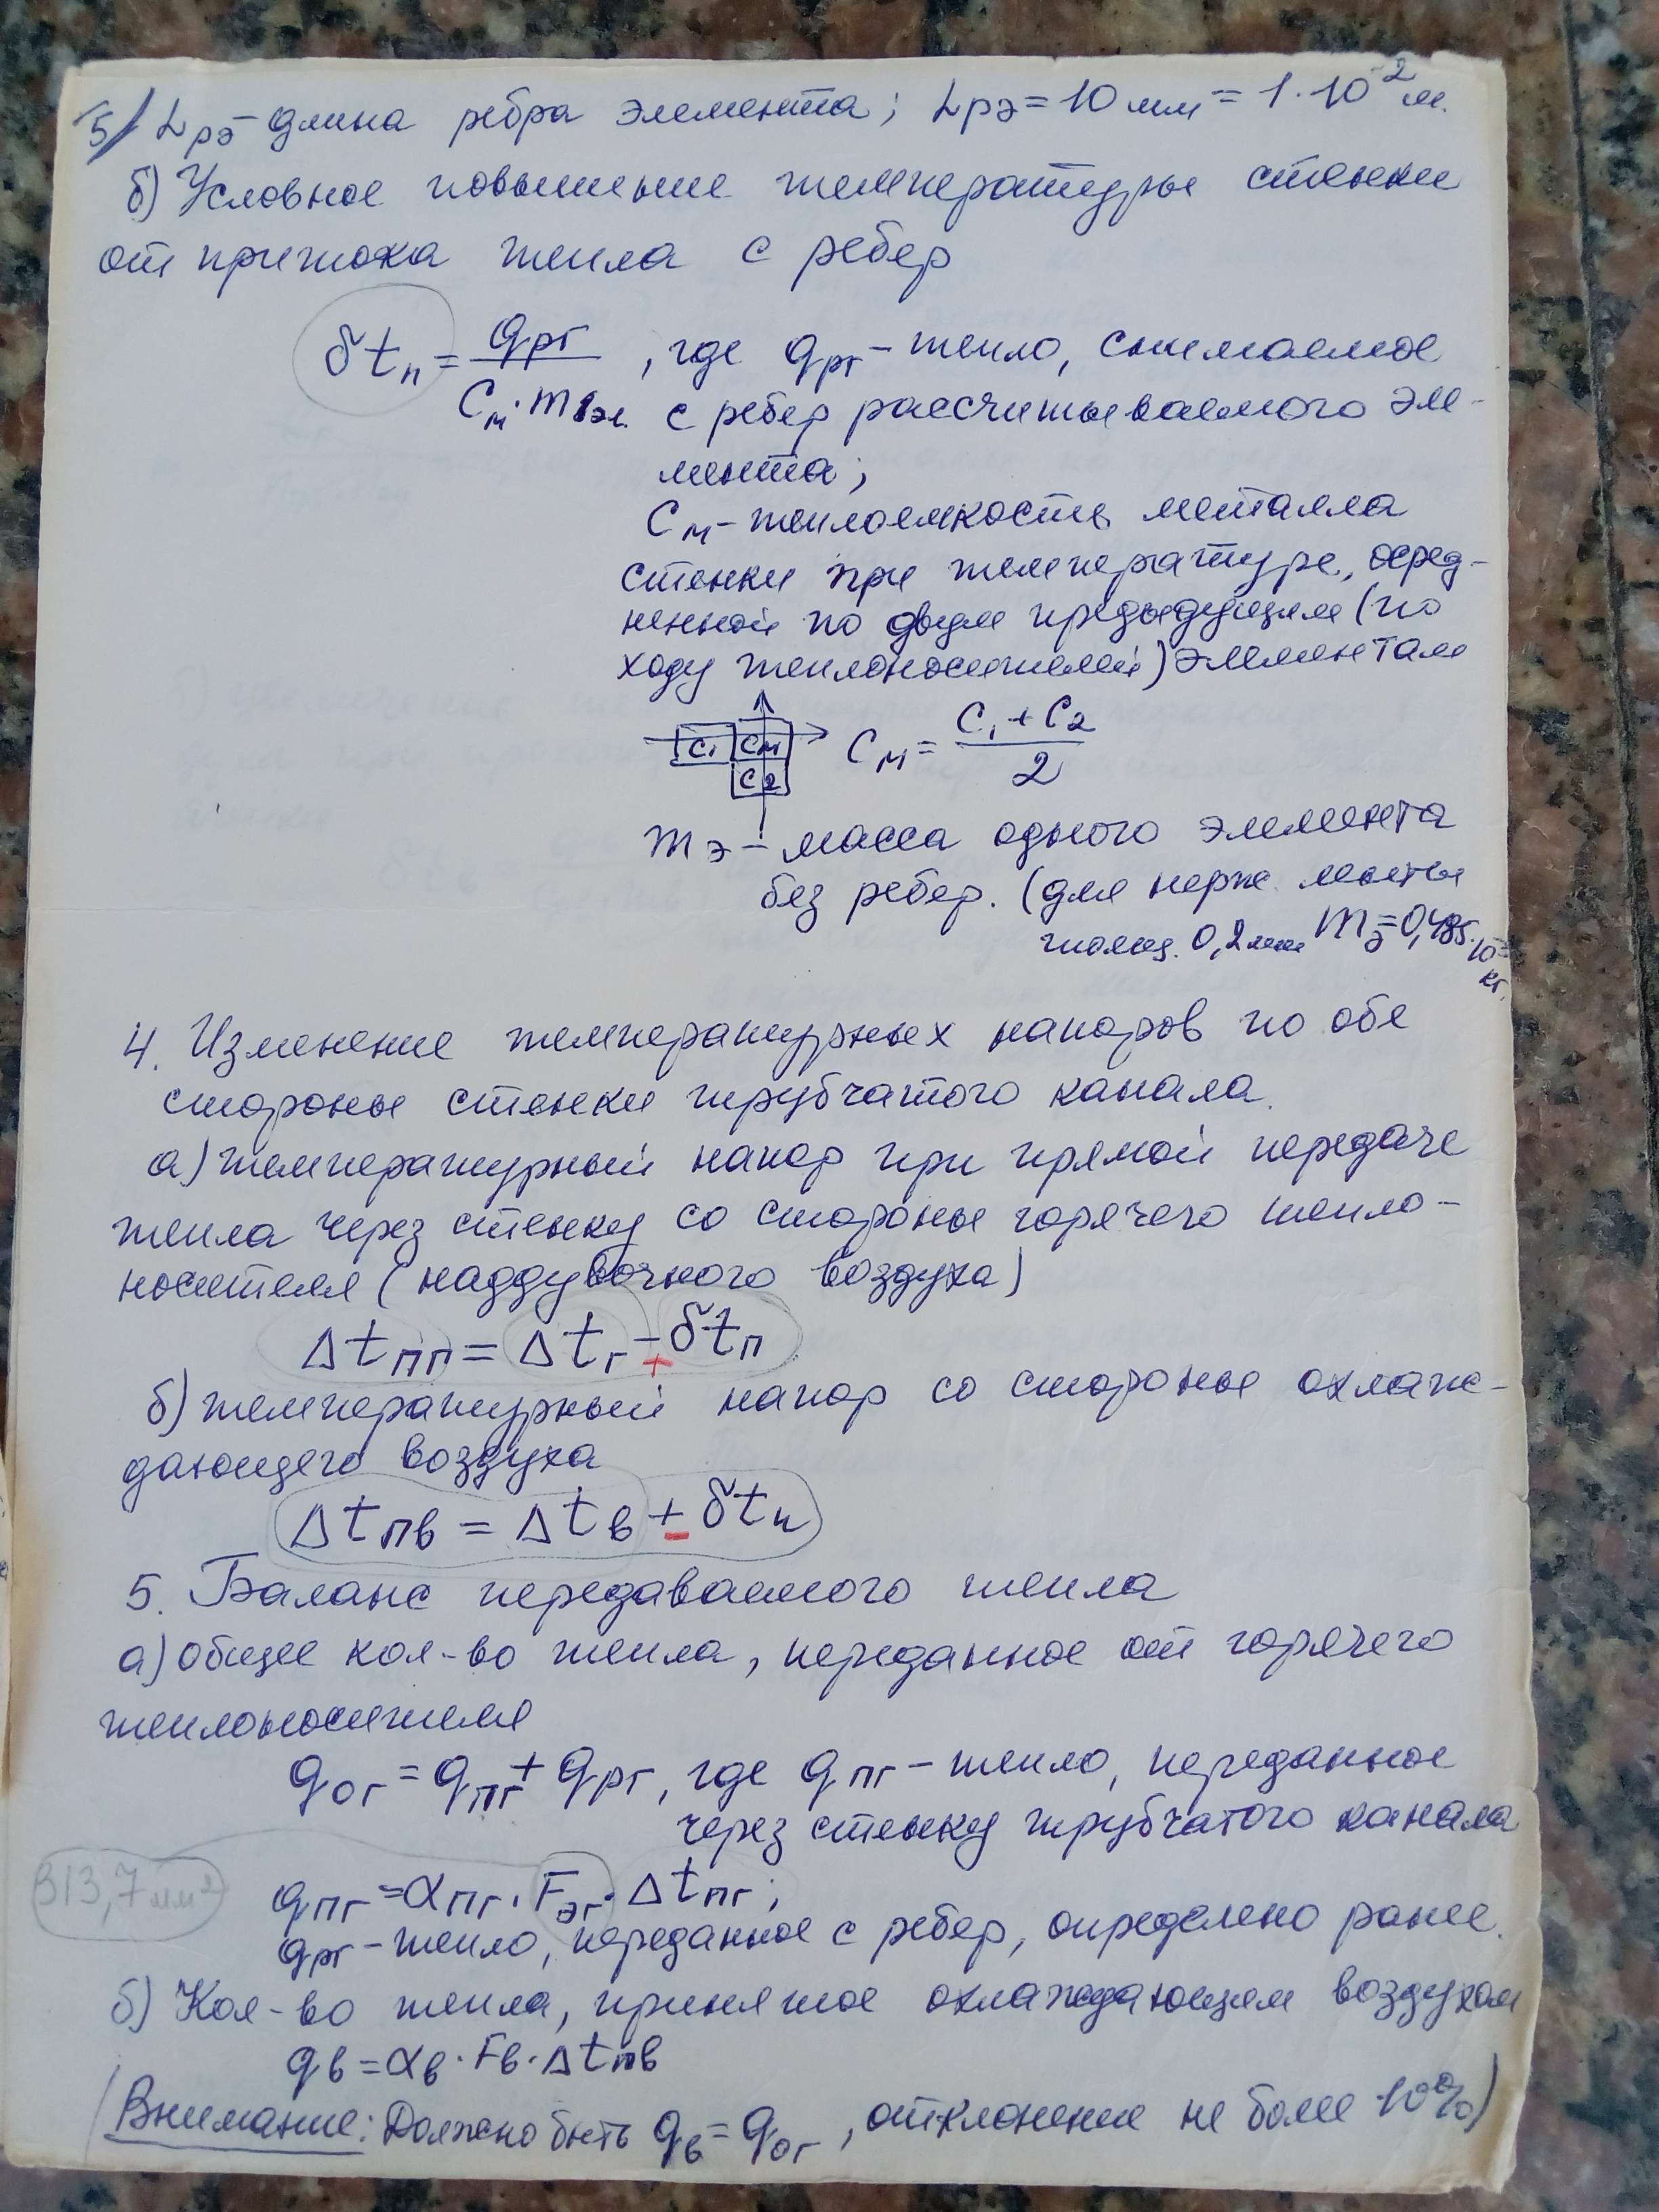 5/ Lрэ – длина ребра элемента; Lрэ = 10 мм = 1·10⁻² м.
б) Условное повышение температуры стенки
от притока тепла с ребер
δtп = qрг / (Cм · m1эл.) , где qрг – тепло, снимаемое
с ребер рассчитываемого эле-
мента;
Cм – теплоемкость металла
стенки при температуре, осред-
ненной по двум предыдущим (по
ходу теплоносителей) элементам
C1 Cм
C2
Cм = (C1 + C2) / 2
mэ – масса одного элемента
без ребер. (для нерж. ленты
толщ. 0,2 мм mэ = 0,485·10⁻³
кг.
4. Изменение температурных напоров по обе
стороны стенки трубчатого канала.
а) температурный напор при прямой передаче
тепла через стенку со стороны горячего тепло-
носителя (наддувочного воздуха)
Δtпп = Δtг – δtп
+
б) температурный напор со стороны охлаж-
дающего воздуха
Δtпв = Δtв + δtп
–
5. Баланс передаваемого тепла
а) общее кол-во тепла, переданное от горячего
теплоносителя
qог = qпг + qрг, где qпг – тепло, переданное
через стенку трубчатого канала
313,7 мм²
qпг = αпг · Fэг · Δtпг;
qрг – тепло, переданное с ребер, определено ранее.
б) Кол-во тепла, принятое охлаждающим воздухом
qв = αв · Fв · Δtпв
(Внимание: Должно быть qв = qог, отклонение не более 10%)